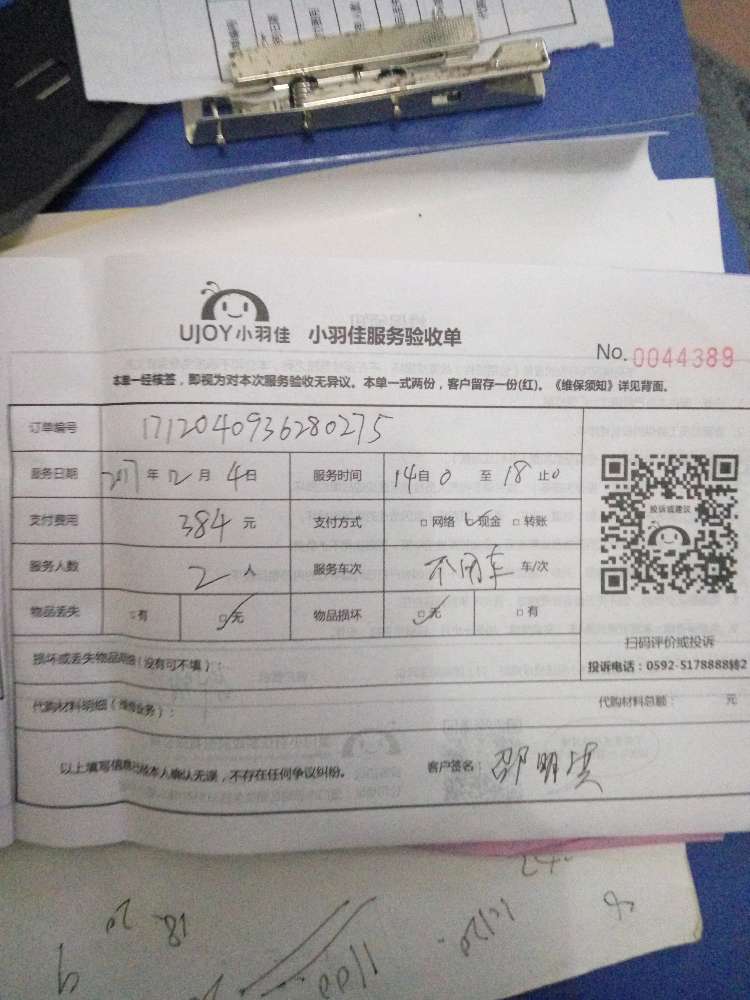 UJOY小羽佳 小羽佳服务验收单
No. 0044389
本单一经核签，即视为对本次服务验收无异议。本单一式两份，客户留存一份(红)。《维保须知》详见背面。
订单编号 1712040936280275
服务日期 2017 年 12 月 4 日 服务时间 14 自 0 至 18 止 0
支付费用 384 元 支付方式 □网络 □现金 □转账
投诉或建议
服务人数 2 人 服务车次 不用车 车/次
物品丢失 □有 □无 物品损坏 □无 □有
扫码评价或投诉
投诉电话：0592-5178888转2
损坏或丢失物品明细(没有可不填)：
代购材料明细(维修业务)： 代购材料总额： 元
以上填写信息已经本人确认无误，不存在任何争议纠纷。 客户签名：邵明